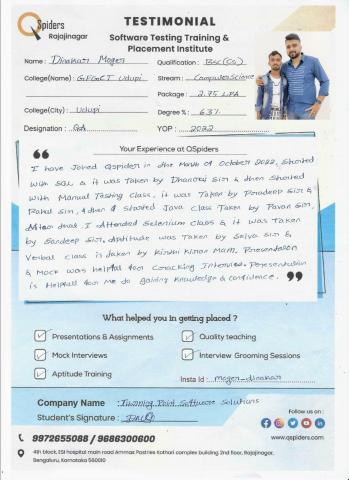 QSpiders
Rajajinagar
TESTIMONIAL
Software Testing Training &
Placement Institute
Name : Dinakar Moger
Qualification : Bsc(Cs)
College(Name) : GFGCT Udupi
Stream : Computer Science
Package : 2.75 LPA
College(City) : Udupi
Degree % : 63%
Designation : QA
YOP : 2022
Your Experience at QSpiders
I have Joined Qspiders in the Month of October 2022, Started
with SQL & it was taken by Dhanraj Sir & then Started
With Manual Testing Class, it was Taken by Pradeep Sir &
Rahul Sir, & then I Started Java Class Taken by Pavan Sir,
After that I Attended Selenium Class & it was Taken
by Sandeep Sir. Aptitude was Taken by Selva Sir &
Verbal Class is taken by Kiran Mam. Presentation
& Mock was helpful for Cracking Interview. Presentation
is Helpfull for me to gaining Knowledge & Confidence.
What helped you in getting placed ?
Presentations & Assignments
Quality teaching
Mock Interviews
Interview Grooming Sessions
Aptitude Training
Insta Id : moger_dinakar
Company Name : Turning Point Software Solutions
Student's Signature :
Follow us on :
9972655088 / 9686300600
www.qspiders.com
4th block, ESI hospital main road Ammas Pastries Kothari complex building 2nd floor, Rajajinagar,
Bengaluru, Karnataka 560010